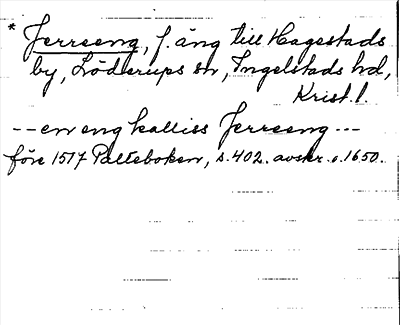 * Jerreeng, f. äng till Hagestads
by, Löderups sn, Ingelstads hd,
Krist. l.
-- en eng kalliss Jerreeng ---
före 1517 Palteboken, s. 402. avskr. o. 1650.